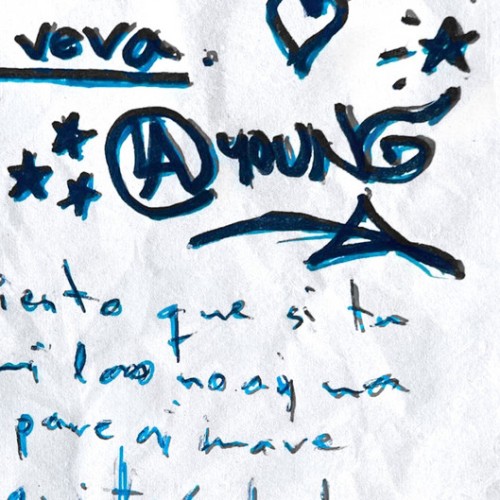 veva
@YOUNG
iento que si tu
mi loo no ay na
pare ai mave